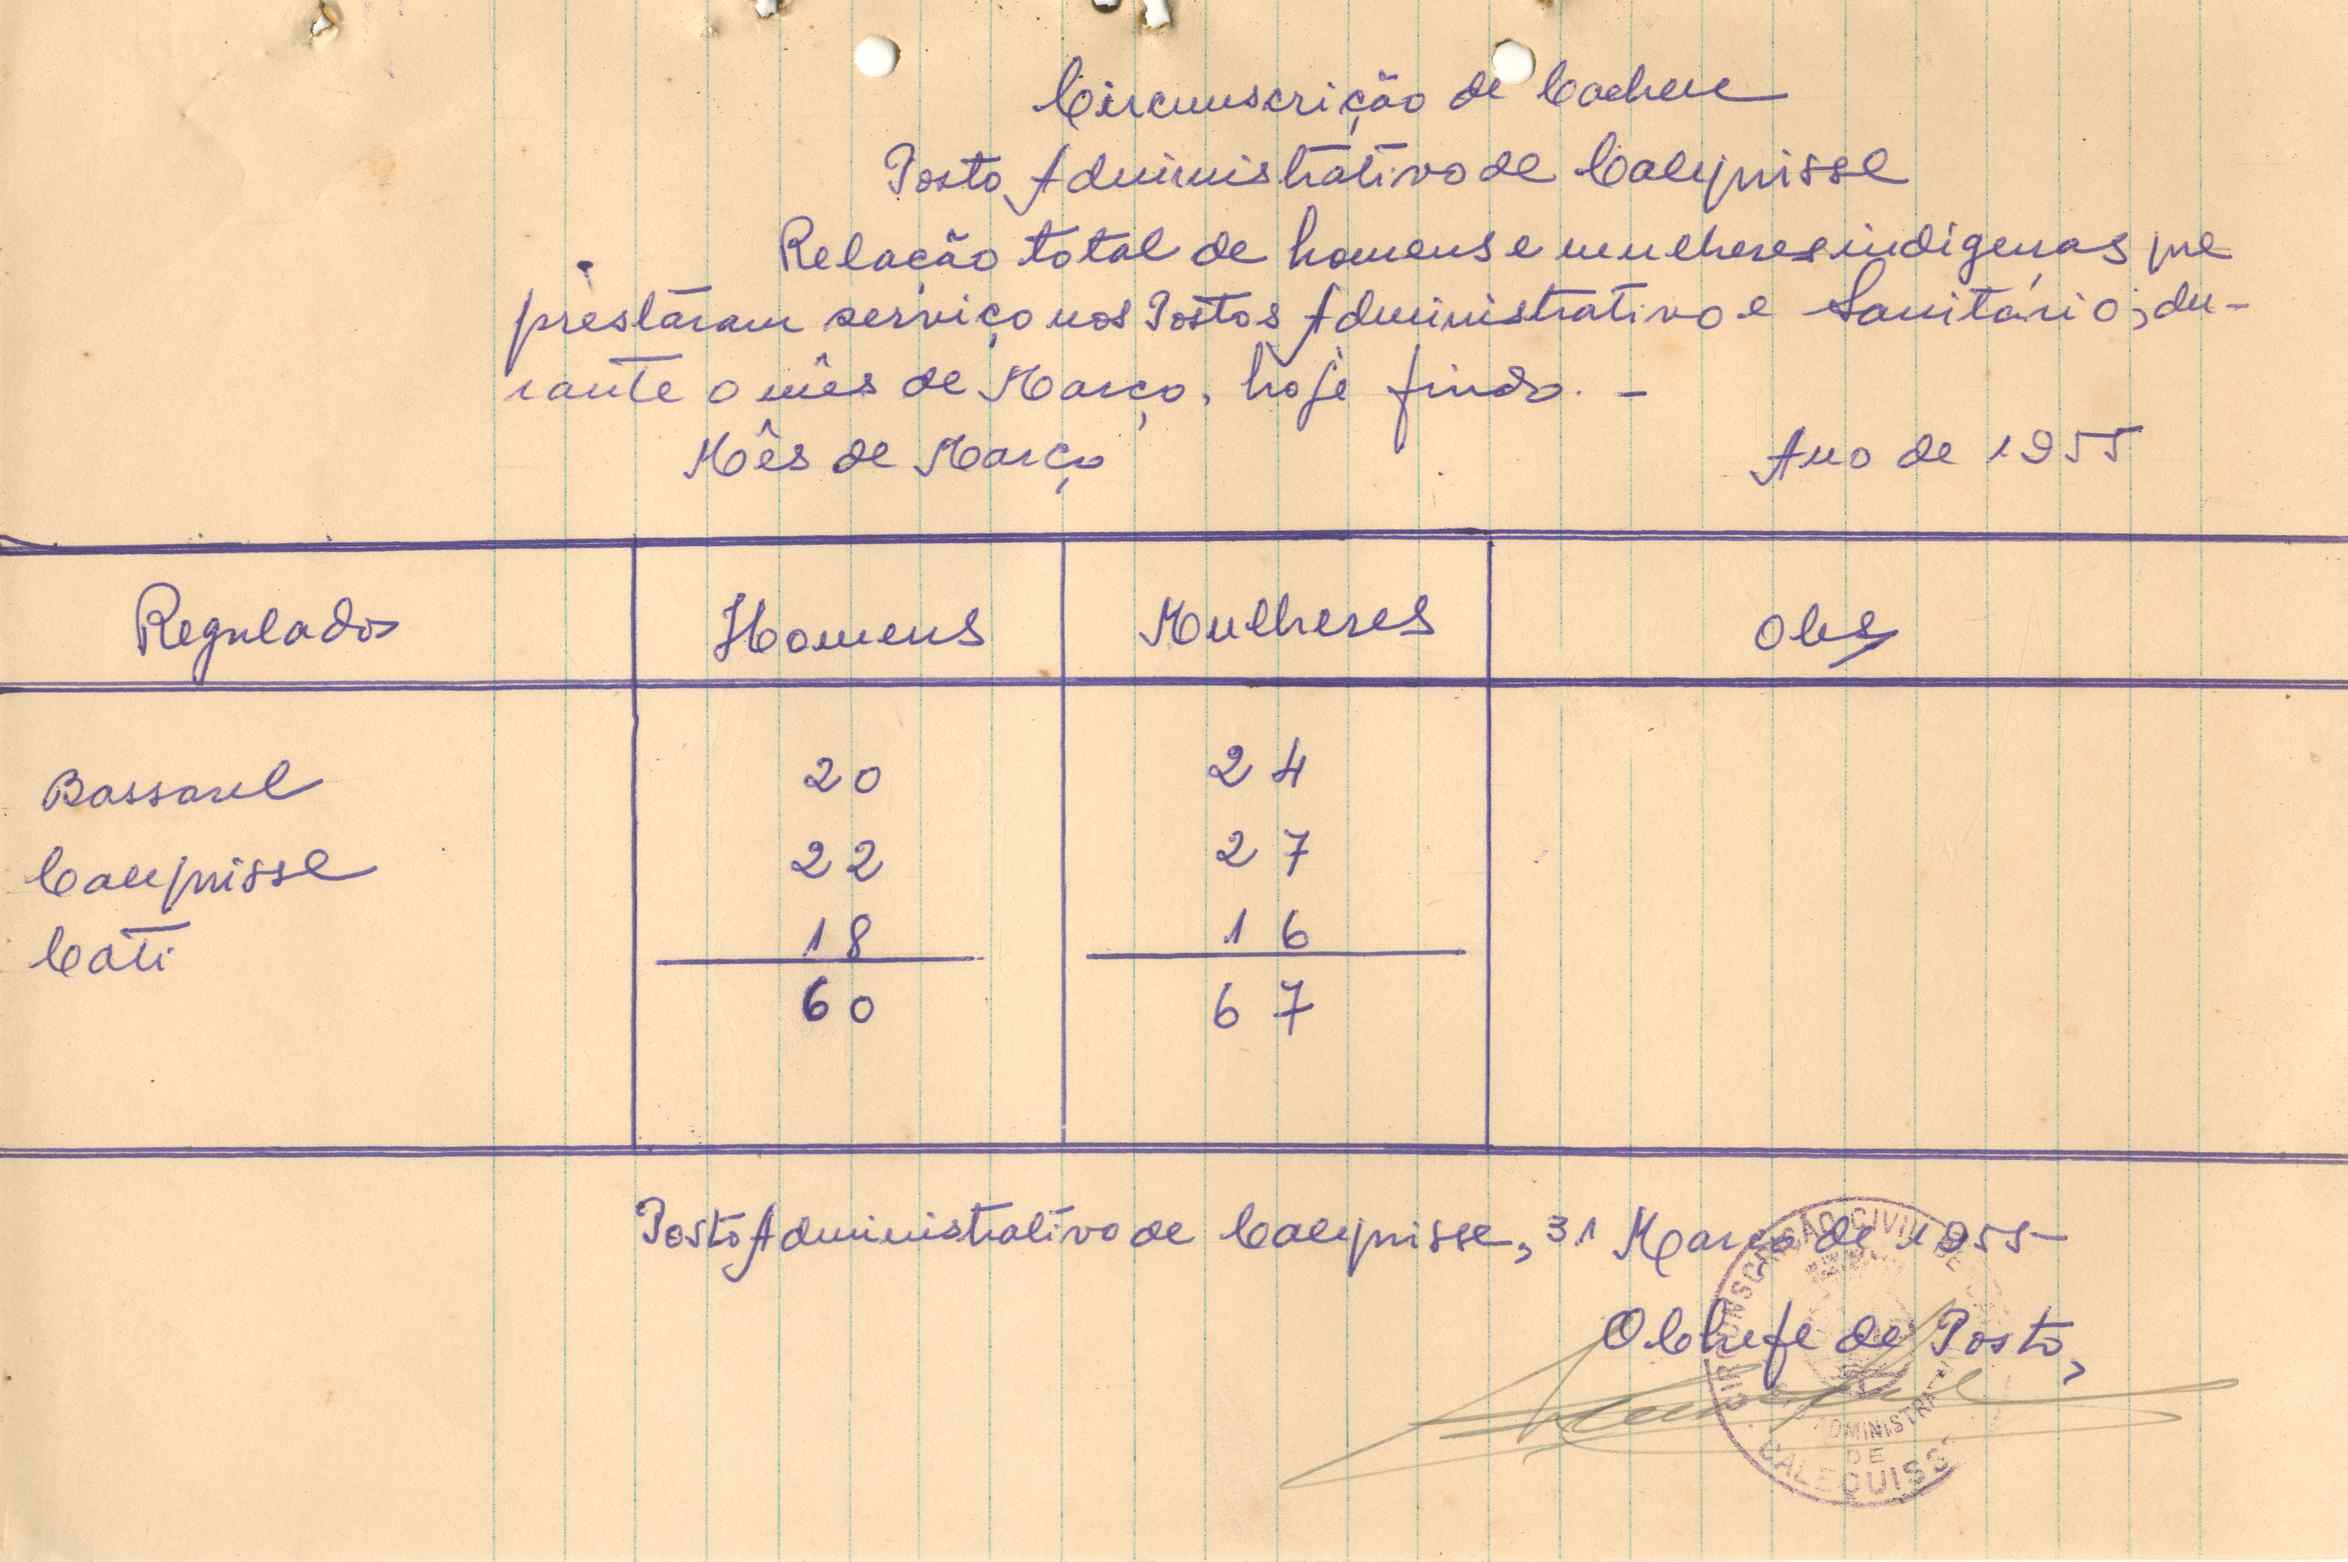 Circunscrição de Cacheu
Posto Administrativo de Calequisse
Relação total de homens e mulheres indigenas que
prestaram serviço nos Postos Administrativo e Sanitário, du-
rante o mês de Março, hoje findo. -
Mês de Março Ano de 1955
Regulados Homens Mulheres Obs
Bassarel 20 24
Calequisse 22 27
Cati 18 16
60 67
Posto Administrativo de Calequisse, 31 Março de 1955-
O Chefe de Posto,
CIRCUNSCRIÇÃO CIVIL DE
ADMINISTRAT
DE
CALEQUISS